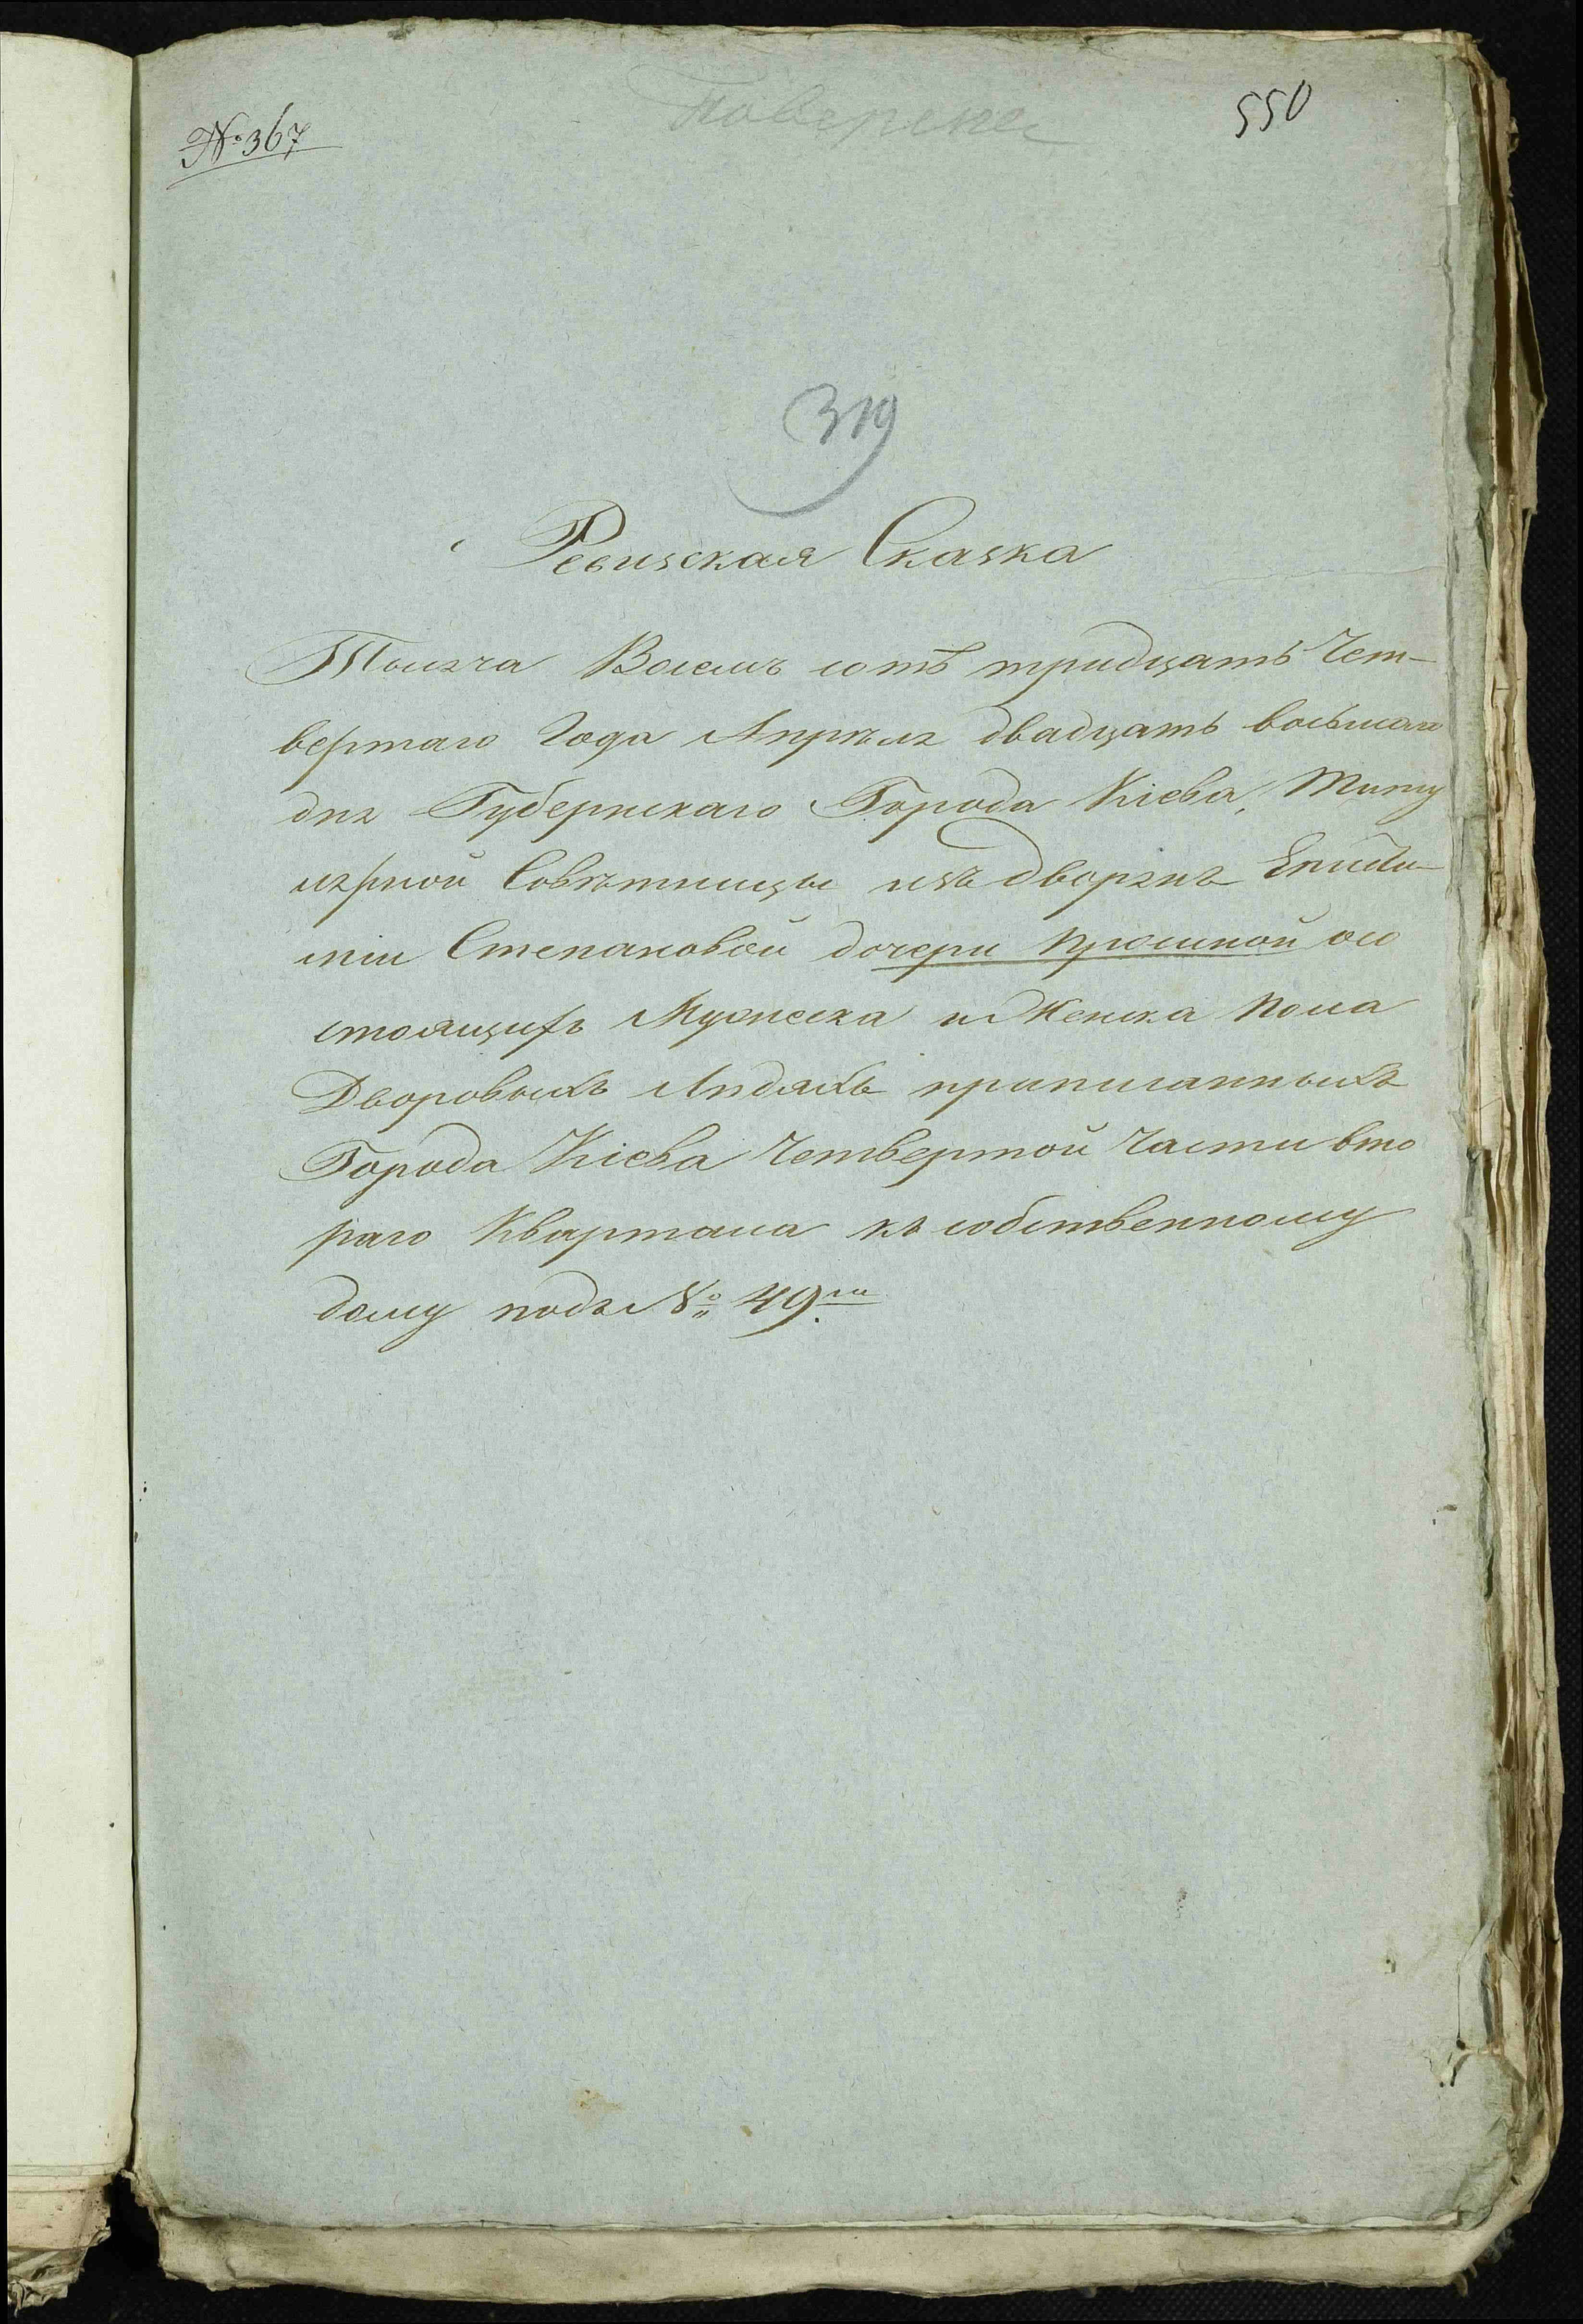 Поверена
550
№ 367
319
Ревизская Сказка
Тысяча Восемъ сотъ тридцать Чет-
вертаго Года Апрѣля двадцать восьмаго
дня Губернскаго Города Кіева, Титу
лярной Совѣтницы изъ дворянъ
Степановой дочери о со
стоящихъ Мужеска и Женска Пола
Дворовыхъ Людяхъ приписанныхъ
Города Кіева Четвертой Части вто
раго Квартала къ собственному
дому подъ № 49м